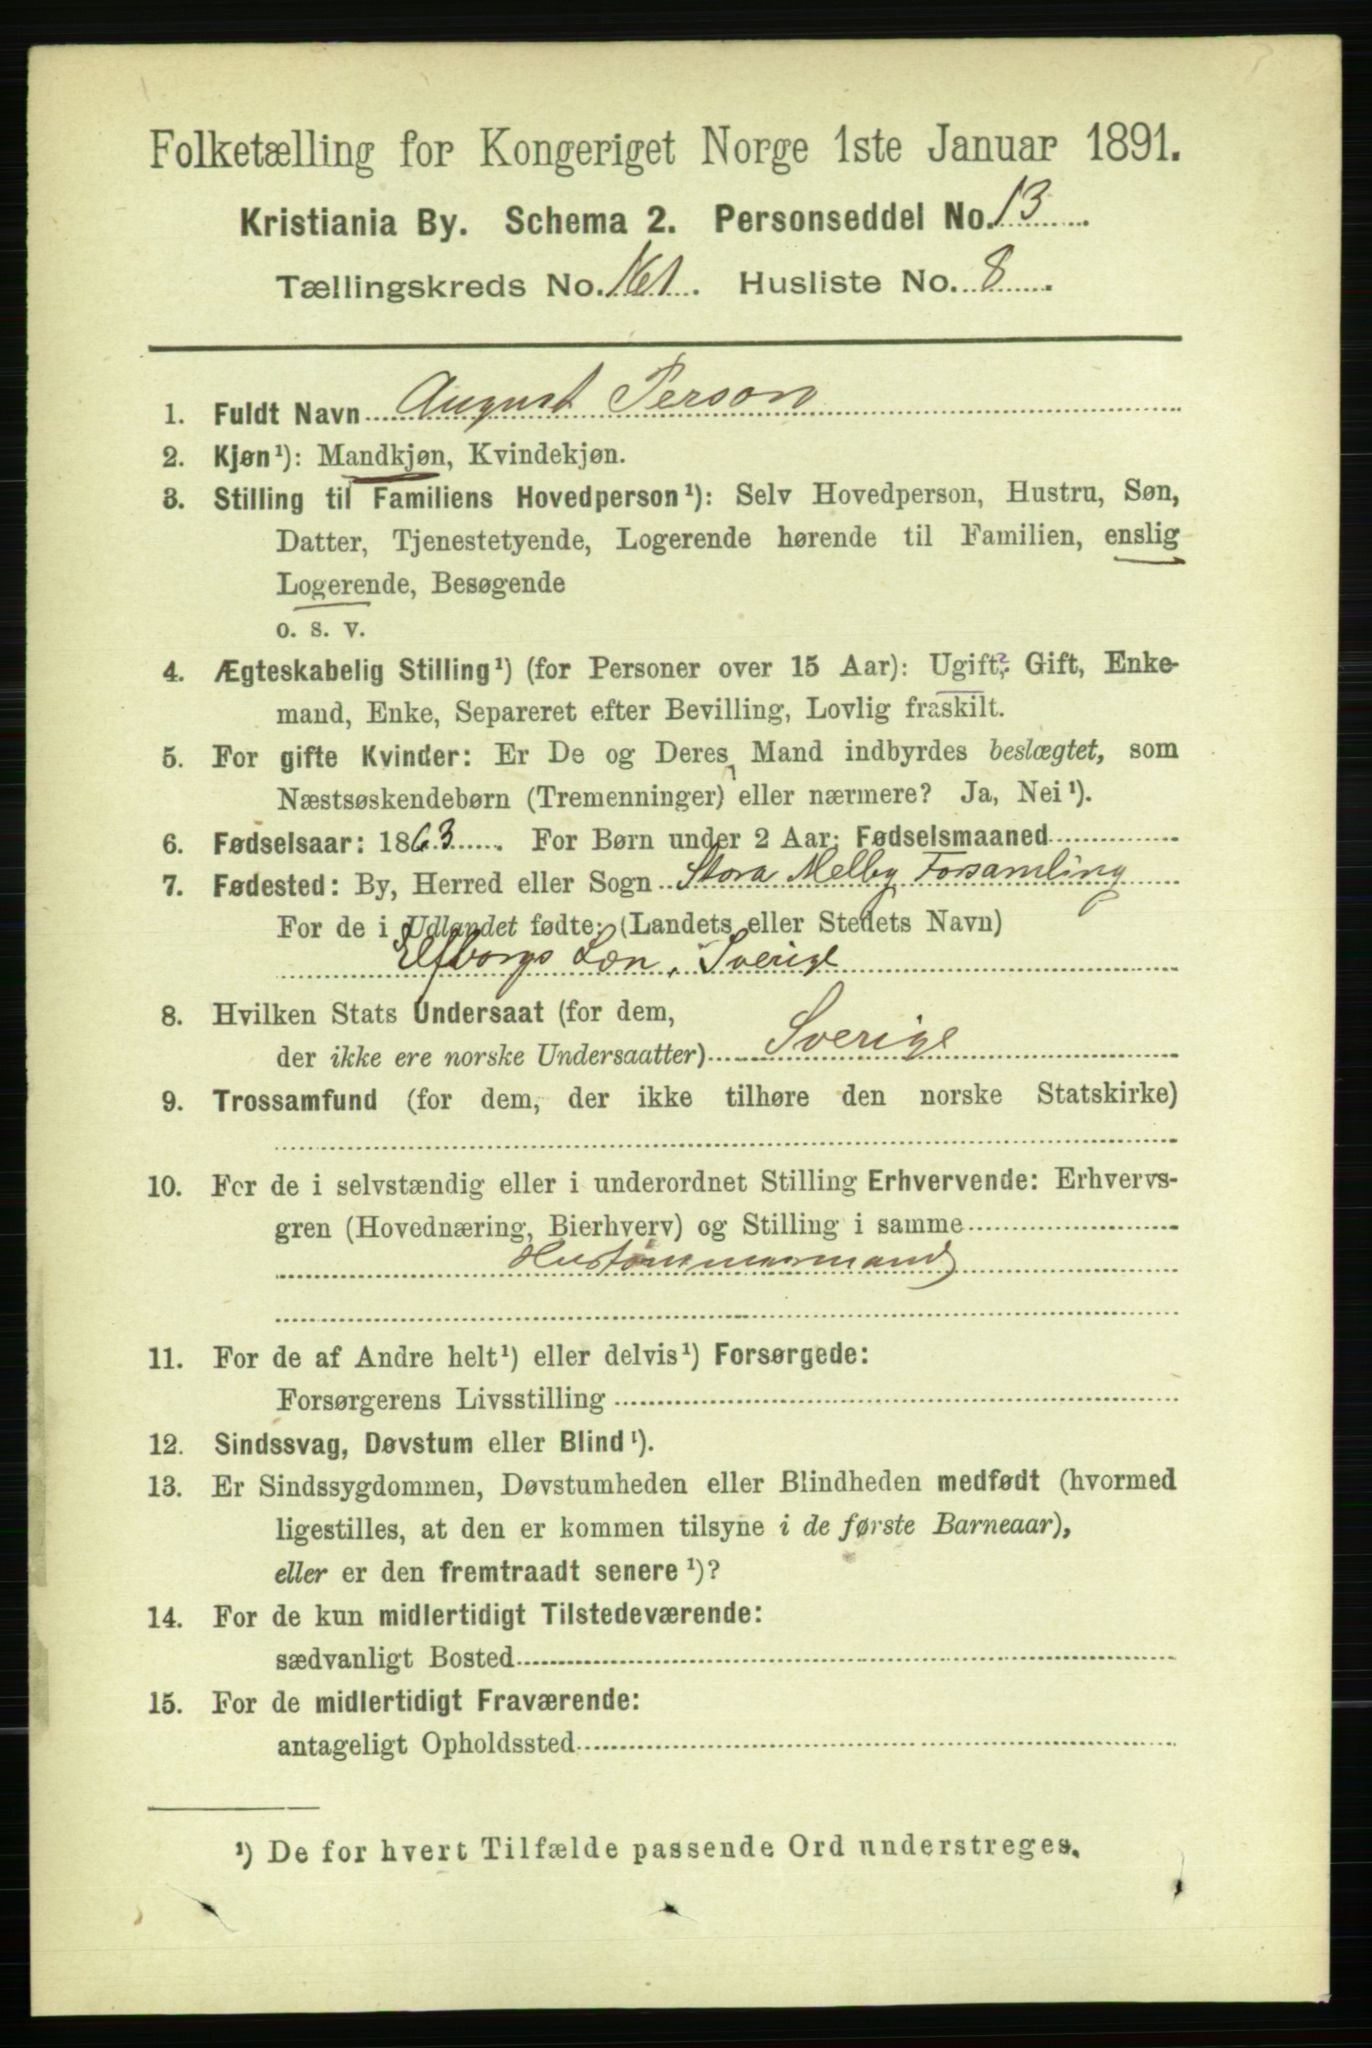 Folketælling for Kongeriget Norge 1ste Januar 1891.
Kristiania By. Schema 2. Personseddel No. 13
Tællingskreds No. 161. Husliste No. 8.
1. Fuldt Navn August Person
2. Kjøn¹): Mandkjøn, Kvindekjøn.
3. Stilling til Familiens Hovedperson¹): Selv Hovedperson, Hustru, Søn,
Datter, Tjenestetyende, Logerende hørende til Familien, enslig
Logerende, Besøgende
o. s. v.
4. Ægteskabelig Stilling¹) (for Personer over 15 Aar): Ugift,? Gift, Enke-
mand, Enke, Separeret efter Bevilling, Lovlig fraskilt.
5. For gifte Kvinder: Er De og Deres Mand indbyrdes beslægtet, som
Næstsøskendebørn (Tremenninger) eller nærmere? Ja, Nei¹).
6. Fødselsaar: 1863. For Børn under 2 Aar: Fødselsmaaned
7. Fødested: By, Herred eller Sogn Stora Melby Forsamling
For de i Udlandet fødte: (Landets eller Stedets Navn)
Elfborgs Læn, Sverige
8. Hvilken Stats Undersaat (for dem,
der ikke ere norske Undersaatter) Sverige
9. Trossamfund (for dem, der ikke tilhøre den norske Statskirke)
10. For de i selvstændig eller i underordnet Stilling Erhvervende: Erhvervs-
gren (Hovednæring, Bierhverv) og Stilling i samme
Hustømmermand
11. For de af Andre helt¹) eller delvis¹) Forsørgede:
Forsørgerens Livsstilling
12. Sindssvag, Døvstum eller Blind¹).
13. Er Sindssygdommen, Døvstumheden eller Blindheden medfødt (hvormed
ligestilles, at den er kommen tilsyne i de første Barneaar),
eller er den fremtraadt senere¹)?
14. For de kun midlertidigt Tilstedeværende:
sædvanligt Bosted
15. For de midlertidigt Fraværende:
antageligt Opholdssted
¹) De for hvert Tilfælde passende Ord understreges.